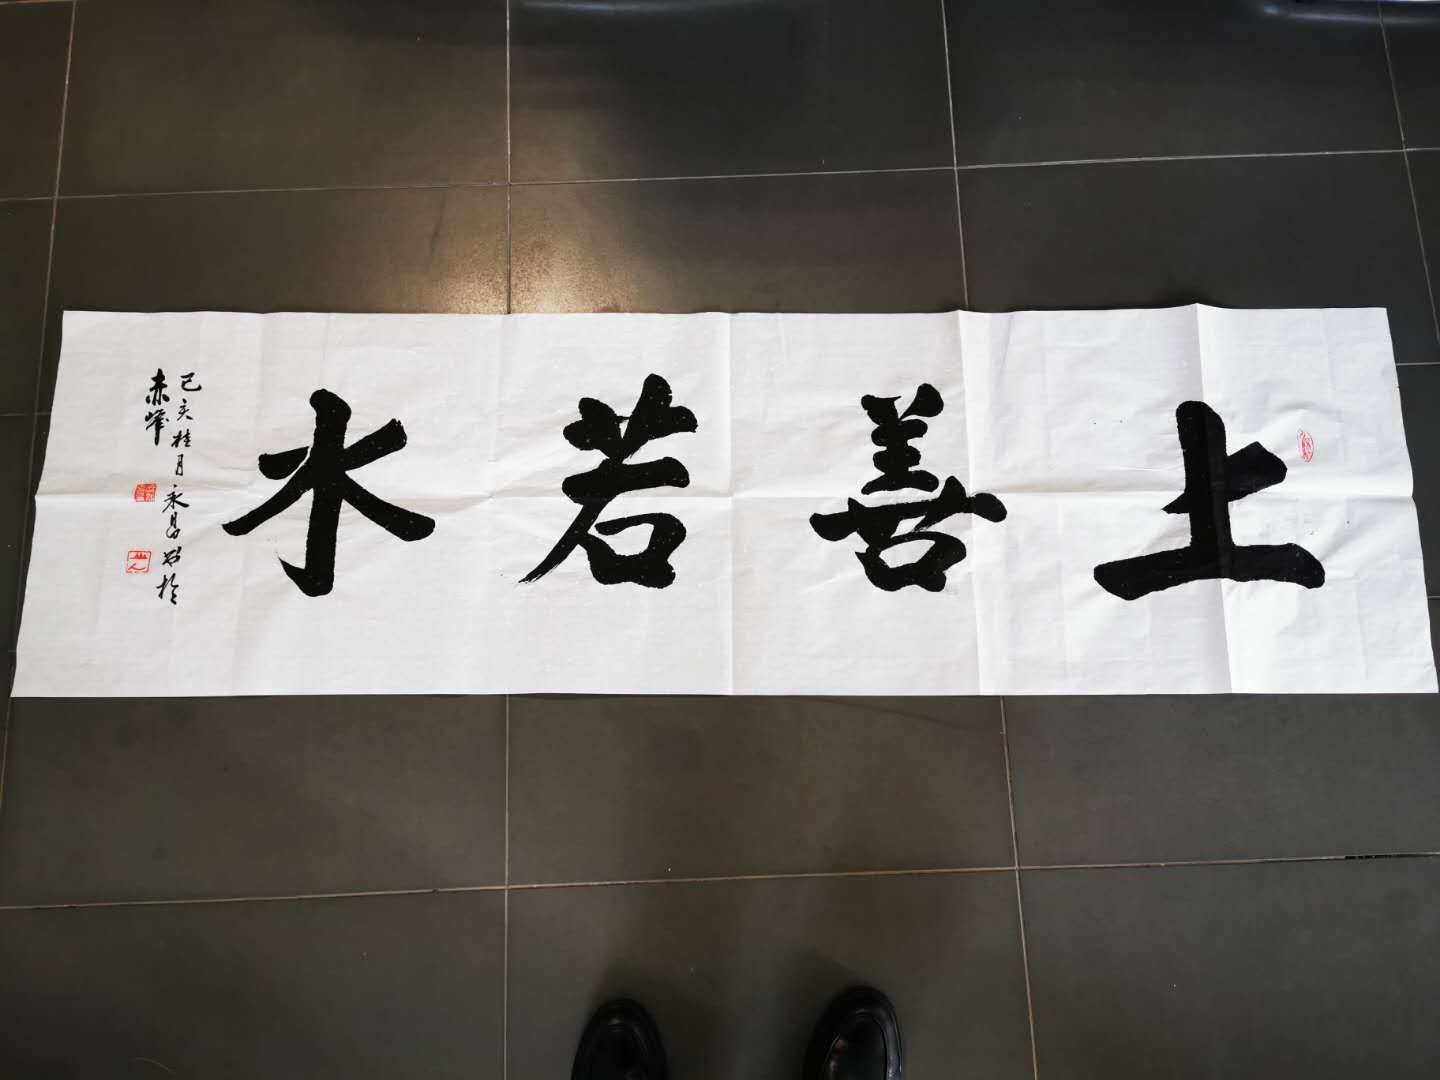 上善若水
己亥桂月永昌书於
赤峰
山人